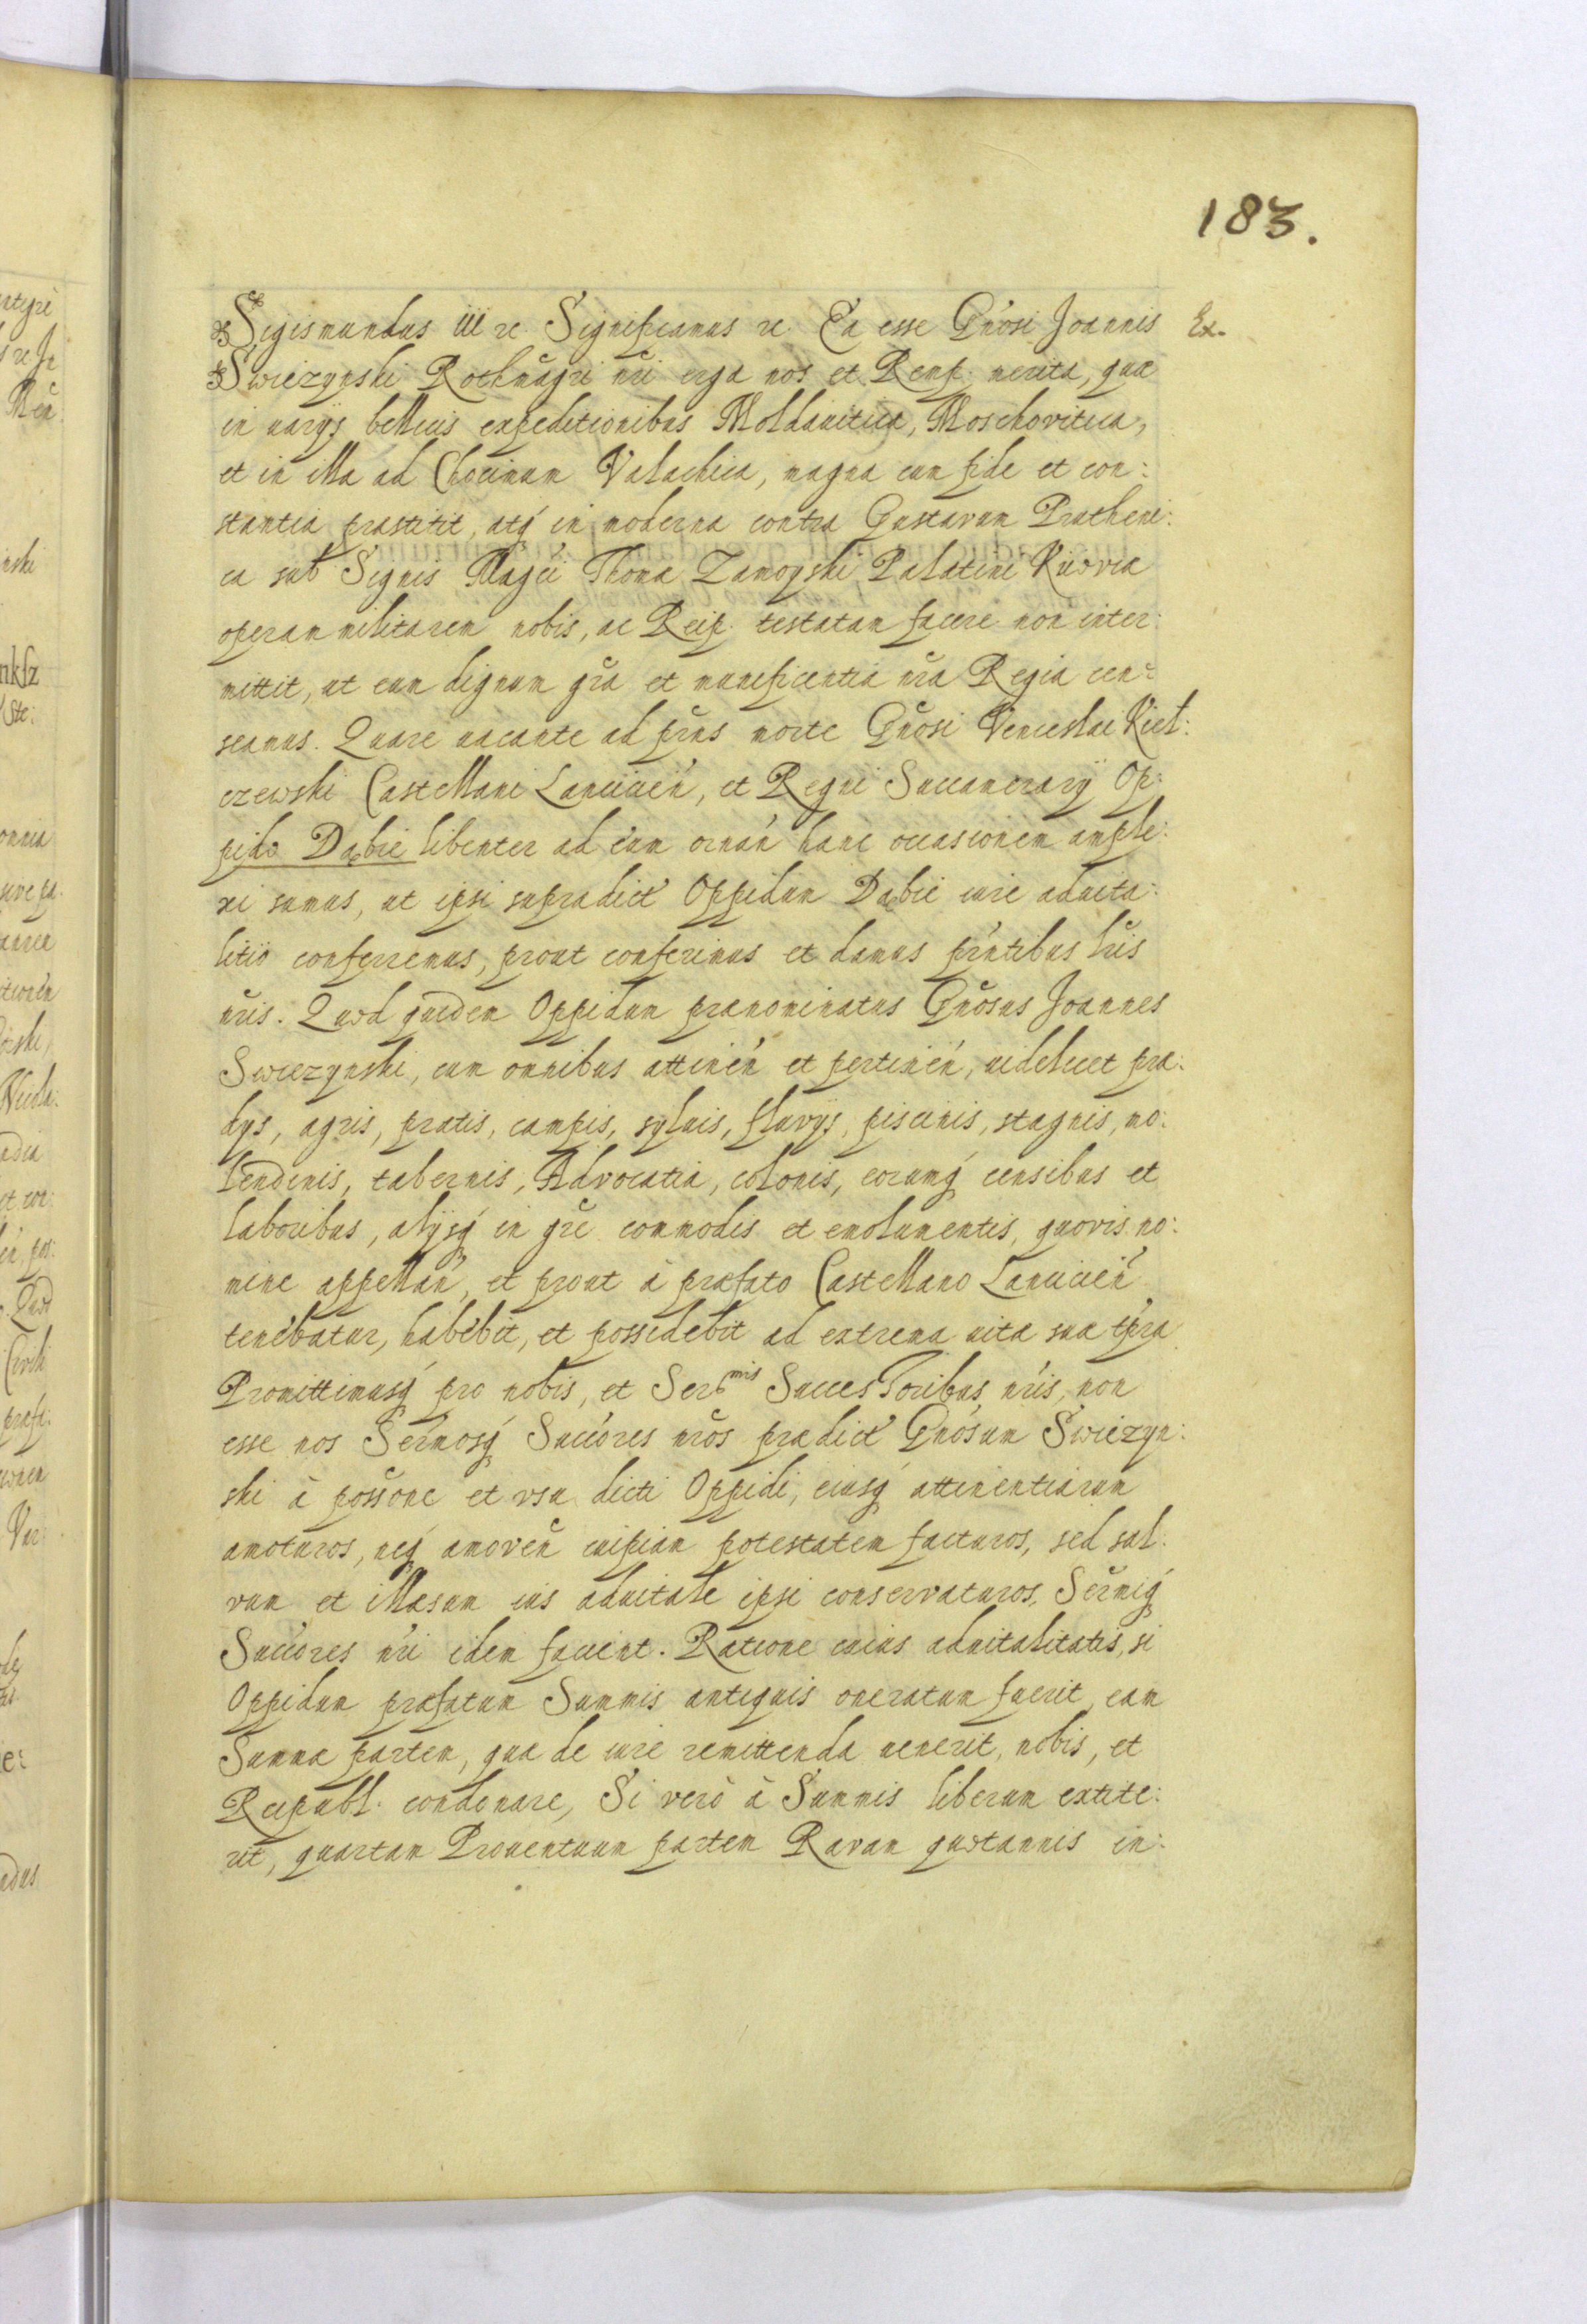 183.
Sigismundus III etc. Significamus etc. Ea esse Gn̄osi Joannis Ex.
Swiezynski Rothm̄agri n̄ri erga nos et Remp. merita, quæ
in uarijs bellicis expeditionibus Moldauitica, Moschovitica,
et in illa ad Chocimum Valachica, magna cum fide et con:
stantia præstitit, atq́ in moderna contra Gustavum Pratheni:
ca sub Signis Mag̃ci Thoma Zamoyski Palatini Kiiovia
operam militarem nobis, ac Reip. testatam facere non inter:
mittit, ut eum dignum gr̄a et munificentia n̄ra Regia cen:
seamus. Quare uacante ad pr̄ns morte Gn̄osi Venceslai Kiel:
czewski Castellani Lancicień, et Regni Succamerarij Op:
pido Dąbie libenter ad eum ornań hanc occasionem ample:
xi sumus, ut ipsi supradict Oppidum Dąbie iure aduita:
litio conferremus, prout conferimus et damus pr̄ntibus l̄ris
n̄ris. Quod quidem Oppidum prænominatus Gn̄osus Joannes
Swiezynski, cum omnibus attineń et pertineń, uidelicet præ:
dys, agris, pratis, campis, syluis, fluvijs, piscinis, stagnis, mo:
lendinis, tabernis, Advocatia, colonis, eorumq́ censibus et
laboribus, alijsq́ in gr̄e commodis et emolumentis, quovis no:
mine appellań, et prout à præfato Castellano Lancicień
tenebatur, habebit, et possidebit ad extrema uitæ suæ tp̄ra
Promittimusq́ pro nobis, et Ser^mis Successoribus n̄ris, non
esse nos Ser̄mosq́ Succ̄ores n̄ros prædict Gn̄osum Swiezyn:
ski à poss̄one et vsu dicti Oppidi, eiusq́ attinentiarum
amoturos, neq́ amoveń cuipiam potestatem facturos, sed sal:
vum et illæsum ius aduitale ipsi conservaturos, Ser̄miq́
Succ̄ores n̄ri idem facient. Ratione cuius aduitalitatis, si
Oppidum præfatum Summis antiquis oneratum fuerit, eam
Summæ partem, quæ de iure remittenda uenerit, nobis, et
Reipubl. condonare, Si verò à Summis liberum extite:
rit, quartam Prouentuum partem Ravam quotannis in: